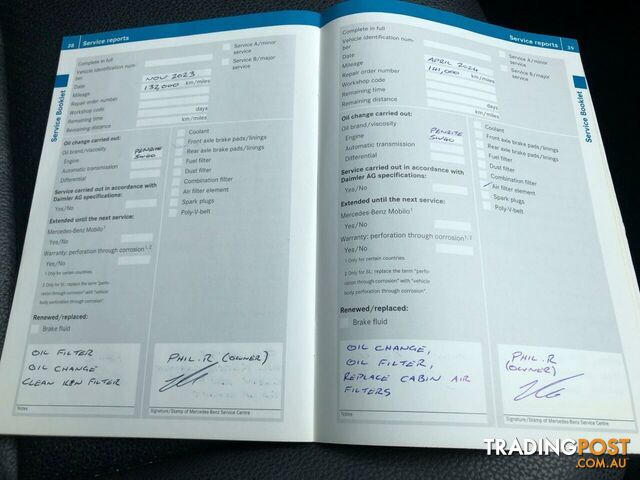 28 Service reports
Service Booklet
Complete in full
Vehicle identification num-
ber
Date NOV 2023
Mileage 132,000 km/miles
Repair order number
Workshop code
Remaining time days
Remaining distance km/miles
Service A/minor
service
Service B/major
service
Oil change carried out:
Oil brand/viscosity PENRITE
Engine 5W40
Automatic transmission
Differential
Service carried out in accordance with
Daimler AG specifications:
Yes/No
Extended until the next service:
Mercedes-Benz Mobilo1
Yes/No
Warranty: perforation through corrosion1, 2
Yes/No
1 Only for certain countries.
2 Only for SL: replace the term "perfo-
ration through corrosion" with "vehicle
body perforation through corrosion".
Renewed/replaced:
Brake fluid
Coolant
Front axle brake pads/linings
Rear axle brake pads/linings
Fuel filter
Dust filter
Combination filter
Air filter element
Spark plugs
Poly-V-belt
OIL FILTER
OIL CHANGE
CLEAN K&N FILTER
Notes
PHIL.R (OWNER)
Signature/Stamp of Mercedes-Benz Service Centre
Service reports 29
Service Booklet
Complete in full
Vehicle identification num-
ber
Date APRIL 2024
Mileage 141,000 km/miles
Repair order number
Workshop code
Remaining time days
Remaining distance km/miles
Service A/minor
service
Service B/major
service
Oil change carried out:
Oil brand/viscosity PENRITE
Engine 5W40
Automatic transmission
Differential
Service carried out in accordance with
Daimler AG specifications:
Yes/No
Extended until the next service:
Mercedes-Benz Mobilo1
Yes/No
Warranty: perforation through corrosion1, 2
Yes/No
1 Only for certain countries.
2 Only for SL: replace the term "perfo-
ration through corrosion" with "vehicle
body perforation through corrosion".
Renewed/replaced:
Brake fluid
Coolant
Front axle brake pads/linings
Rear axle brake pads/linings
Fuel filter
Dust filter
Combination filter
Air filter element
Spark plugs
Poly-V-belt
OIL CHANGE,
OIL FILTER,
REPLACE CABIN AIR
FILTERS
Notes
PHIL.R
(OWNER)
Signature/Stamp of Mercedes-Benz Service Centre
TRADINGPOST
.COM.AU